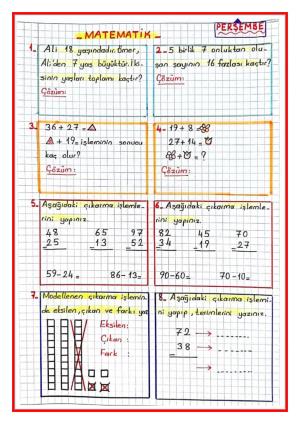 PERŞEMBE
MATEMATİK
1- Ali 18 yaşındadır. Ömer,
Ali'den 7 yaş büyüktür. İki-
sinin yaşları toplamı kaçtır?
Çözüm:
2- 5 birlik 7 onluktan olu-
şan sayının 16 fazlası kaçtır?
Çözüm:
3. 36 + 27 =
+ 19 = işleminin sonucu
kaç olur?
Çözüm:
4- 19 + 8 =
27 + 14 =
+ = ?
Çözüm:
5. Aşağıdaki çıkarma işlemle-
rini yapınız.
48 65 97
25 13 52
59-24= 86-13=
6. Aşağıdaki çıkarma işlemle-
rini yapınız.
82 45 70
34 19 27
90-60= 70-10=
7. Modellenen çıkarma işlemin-
de eksilen, çıkan ve farkı ya
Eksilen:
Çıkan :
Fark :
8. Aşağıdaki çıkarma işlemi-
ni yapıp, terimlerini yazınız.
72
38